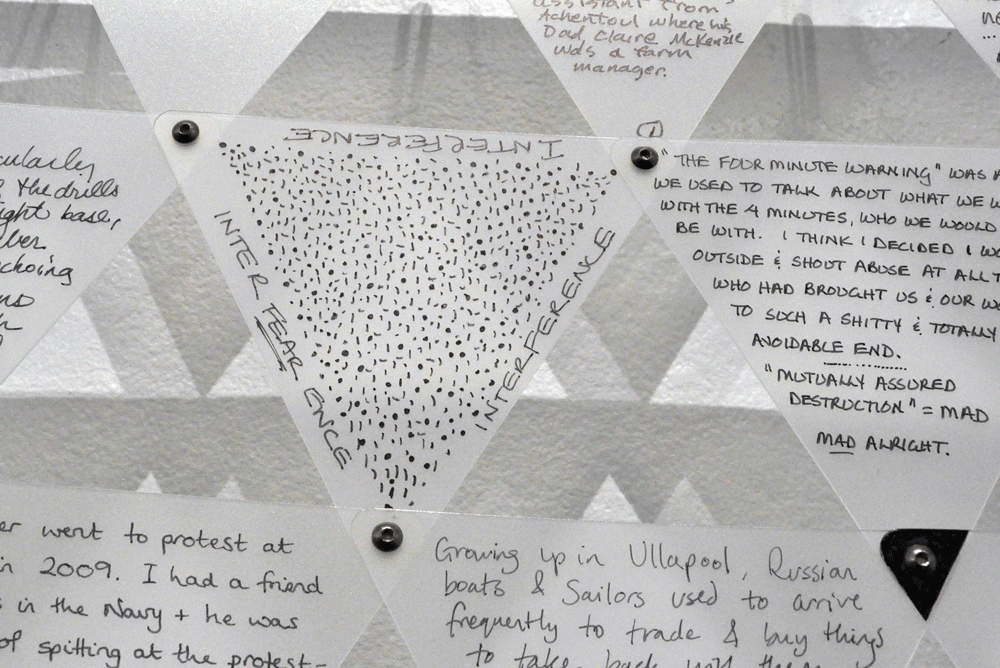 assistant from
Achentoul where his
Dad, Claire McKenzie
was a farm
manager.
the drills
base,
INTERFERENCE
INTER FEAR ENCE
INTERFERENCE
1
"THE FOUR MINUTE WARNING" WAS
WE USED TO TALK ABOUT WHAT WE
WITH THE 4 MINUTES, WHO WE WOULD
BE WITH. I THINK I DECIDED I
OUTSIDE & SHOUT ABUSE AT ALL
WHO HAD BROUGHT US & OUR
TO SUCH A SHITTY & TOTALLY
AVOIDABLE END.
"MUTUALLY ASSURED
DESTRUCTION" = MAD
MAD ALRIGHT.
went to protest at
2009. I had a friend
in the Navy + he was
of spitting at the protest-
Growing up in Ullapool, Russian
boats & Sailors used to arrive
frequently to trade & buy things
to take back